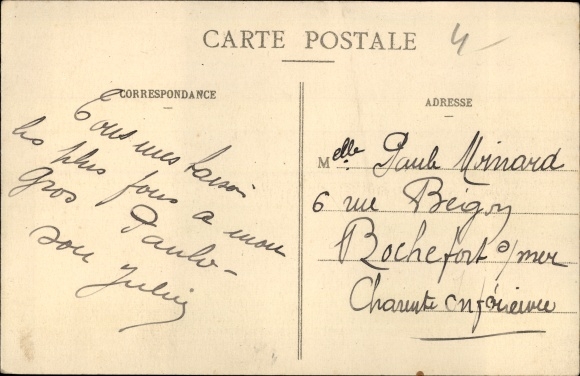 CARTE POSTALE
4
CORRESPONDANCE
Tous mes baisers
les plus fous a mon
Gros Paulo -
son
ADRESSE
Melle. Paule Moinard
6 rue Bégon
Rochefort s/mer
Charente Inférieure